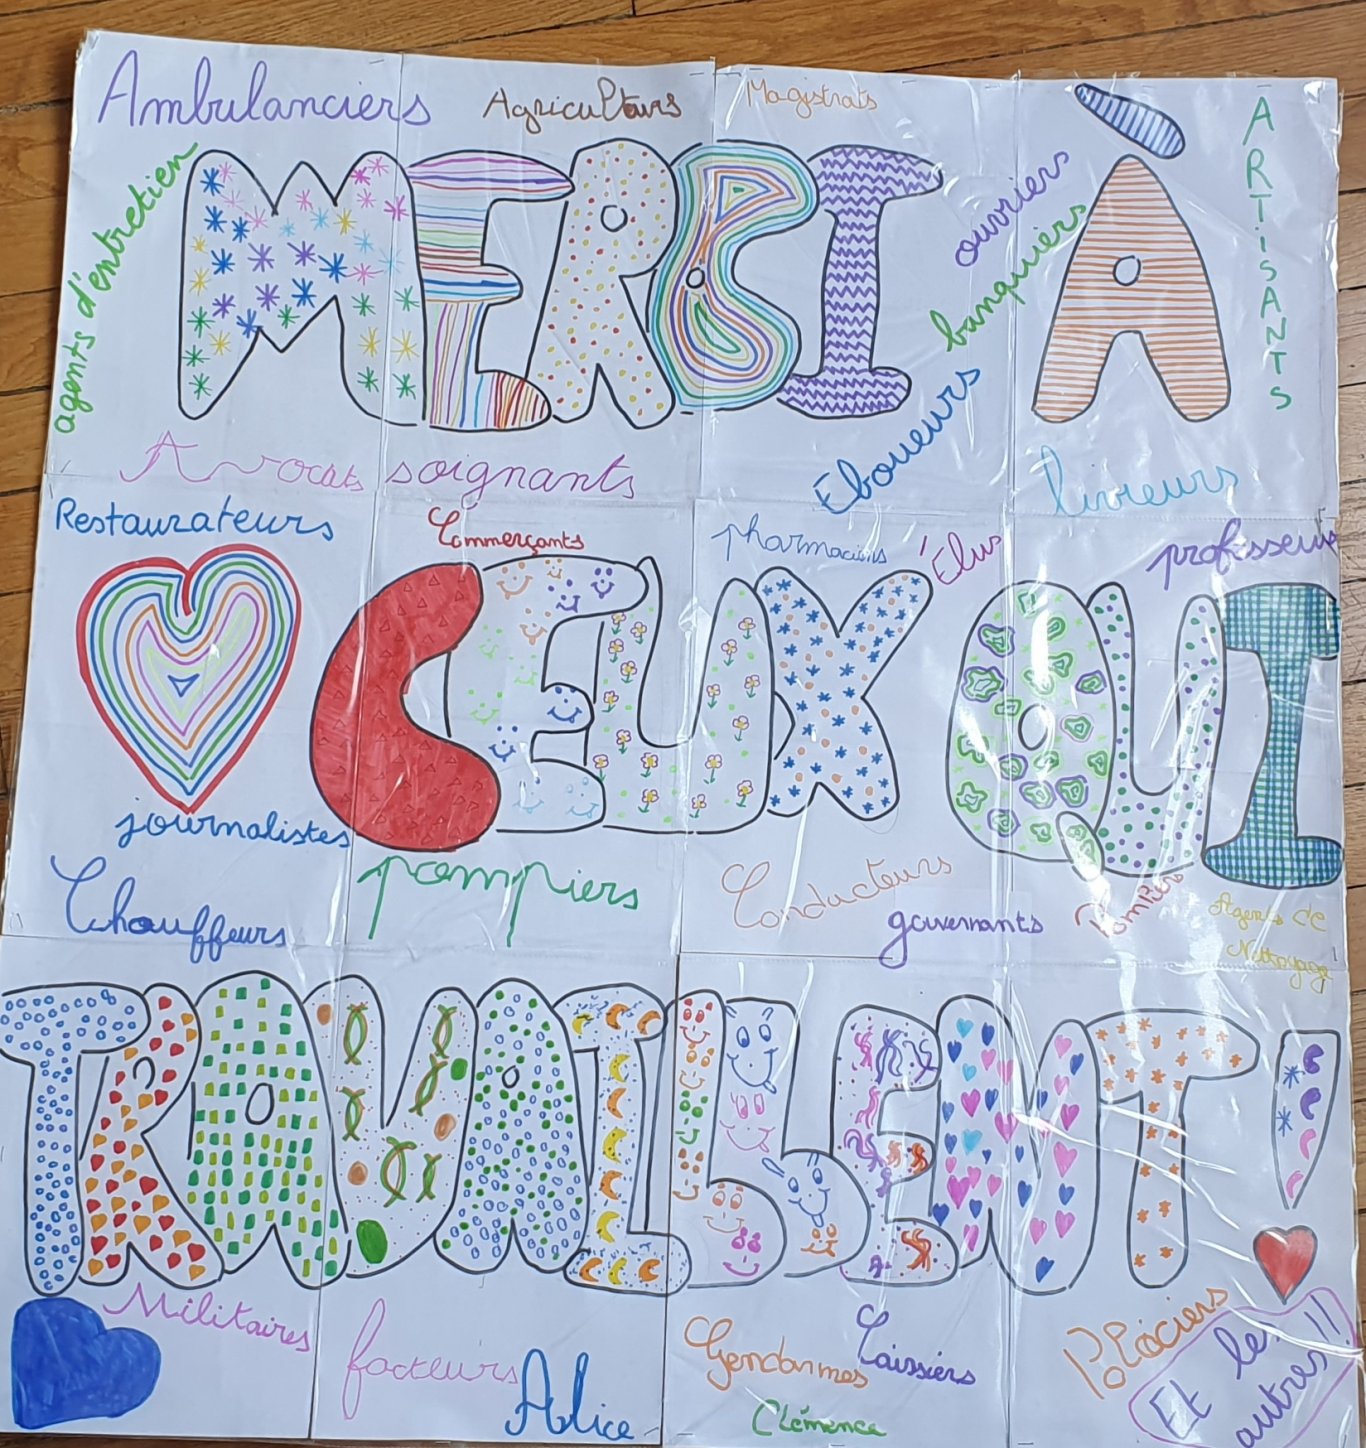 Ambulanciers
Agriculteurs
Magistrats
ARTiSANTS
agents d'entretien
MERCI
ouvriers
banquiers
À
Eboueurs
Avocats
soignants
livreurs
Restaurateurs
Commerçants
pharmaciens
Élus
professeurs
CEUX QUI
journalistes
pompiers
Chauffeurs
Conducteurs
gouvernants
Pompiers
Agents de
Nettoyage
TRAVAILLENT !
Militaires
facteurs
Alice
Gendarmes
Caissiers
Clémence
Policiers
Et les
autres !!